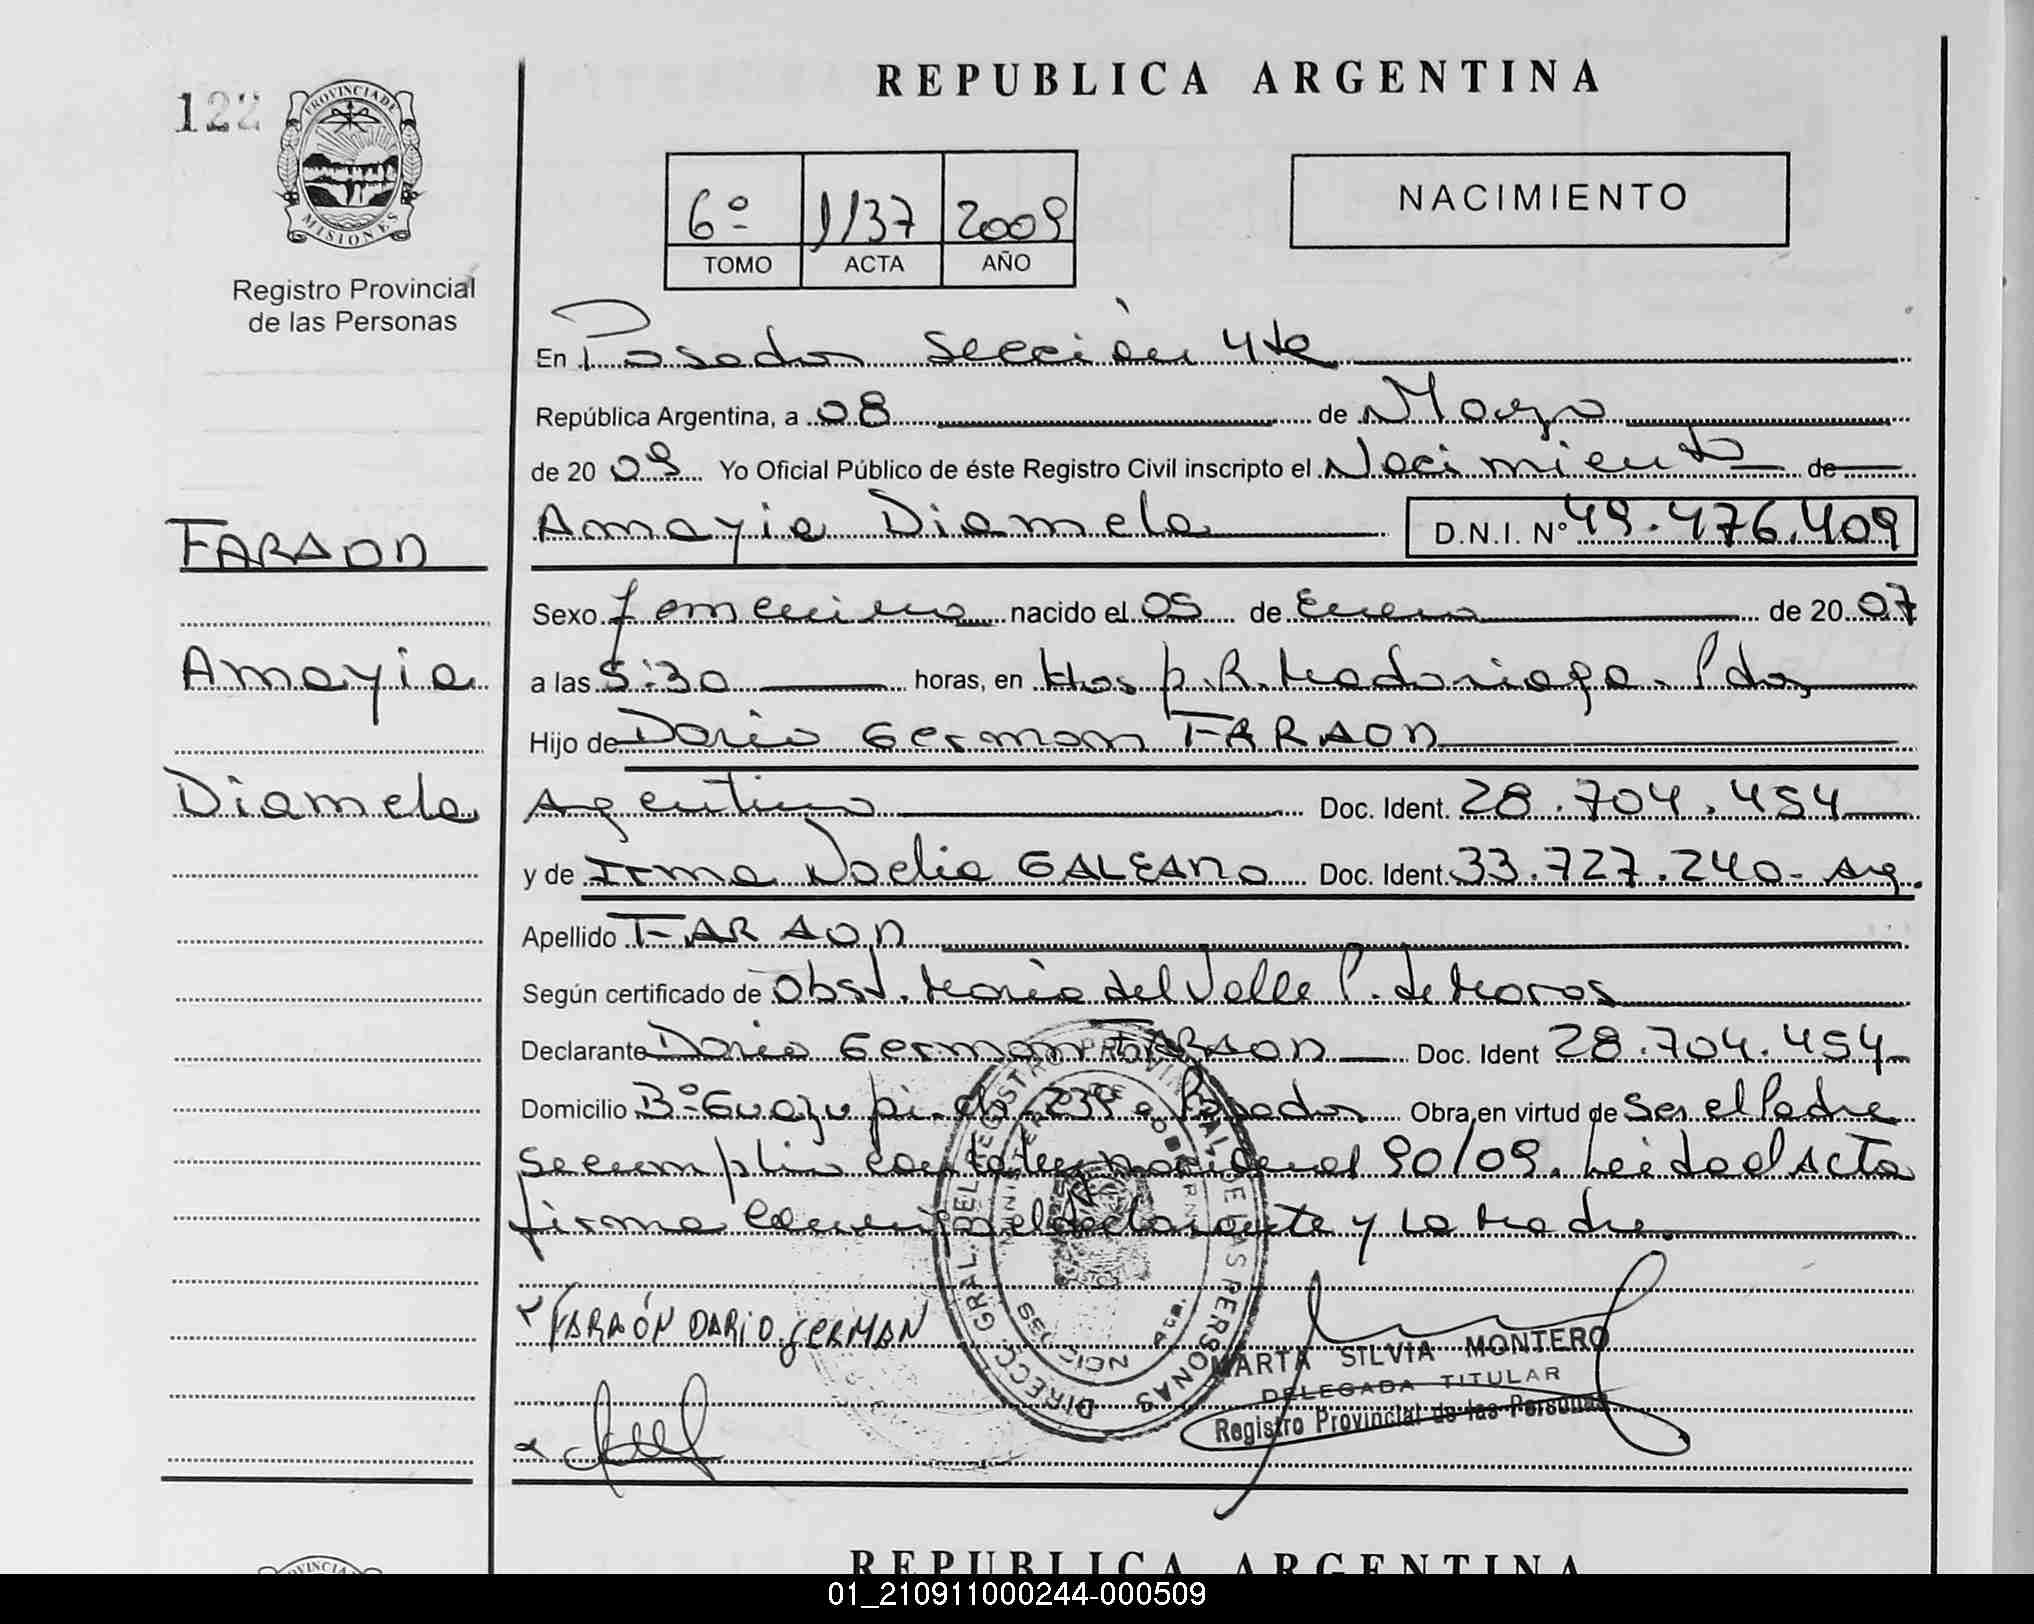 122
PROVINCIA DE
MISIONES
Registro Provincial
de las Personas
FARAON
Amayia
Diamela
REPUBLICA ARGENTINA
6º 1137 2009
TOMO ACTA AÑO
NACIMIENTO
En Posadas Sección 4ta
República Argentina, a 08 de Mayo
de 20 09 Yo Oficial Público de éste Registro Civil inscripto el Nacimiento de
Amayia Diamela D.N.I. Nº 49.476.409
Sexo femenino nacido el 05 de Enero de 20 07
a las 5:30 horas, en Hosp. R. Madariaga. Pdas
Hijo de Dario German FARAON
Argentino Doc. Ident. 28.704.454
y de Irma Noelia GALEANO Doc. Ident. 33.727.240- Arg.
Apellido FARAON
Según certificado de Obst. Maria del Valle P. de Moros
Declarante Dario German FARAON Doc. Ident 28.704.454
Domicilio Bº Guazupi. Posadas Obra en virtud de Ser el Padre
Se cumplio con la ley 90/09. Leida el Acta
firma Conmigo el declarante y La Madre.
FARAÓN DARIO GERMAN
DIRECC. GRAL. DEL REGISTRO PROVINCIAL DE LAS PERSONAS
MARTA SILVIA MONTERO
DELEGADA TITULAR
Registro Provincial de las Personas
REPUBLICA ARGENTINA
01_210911000244-000509